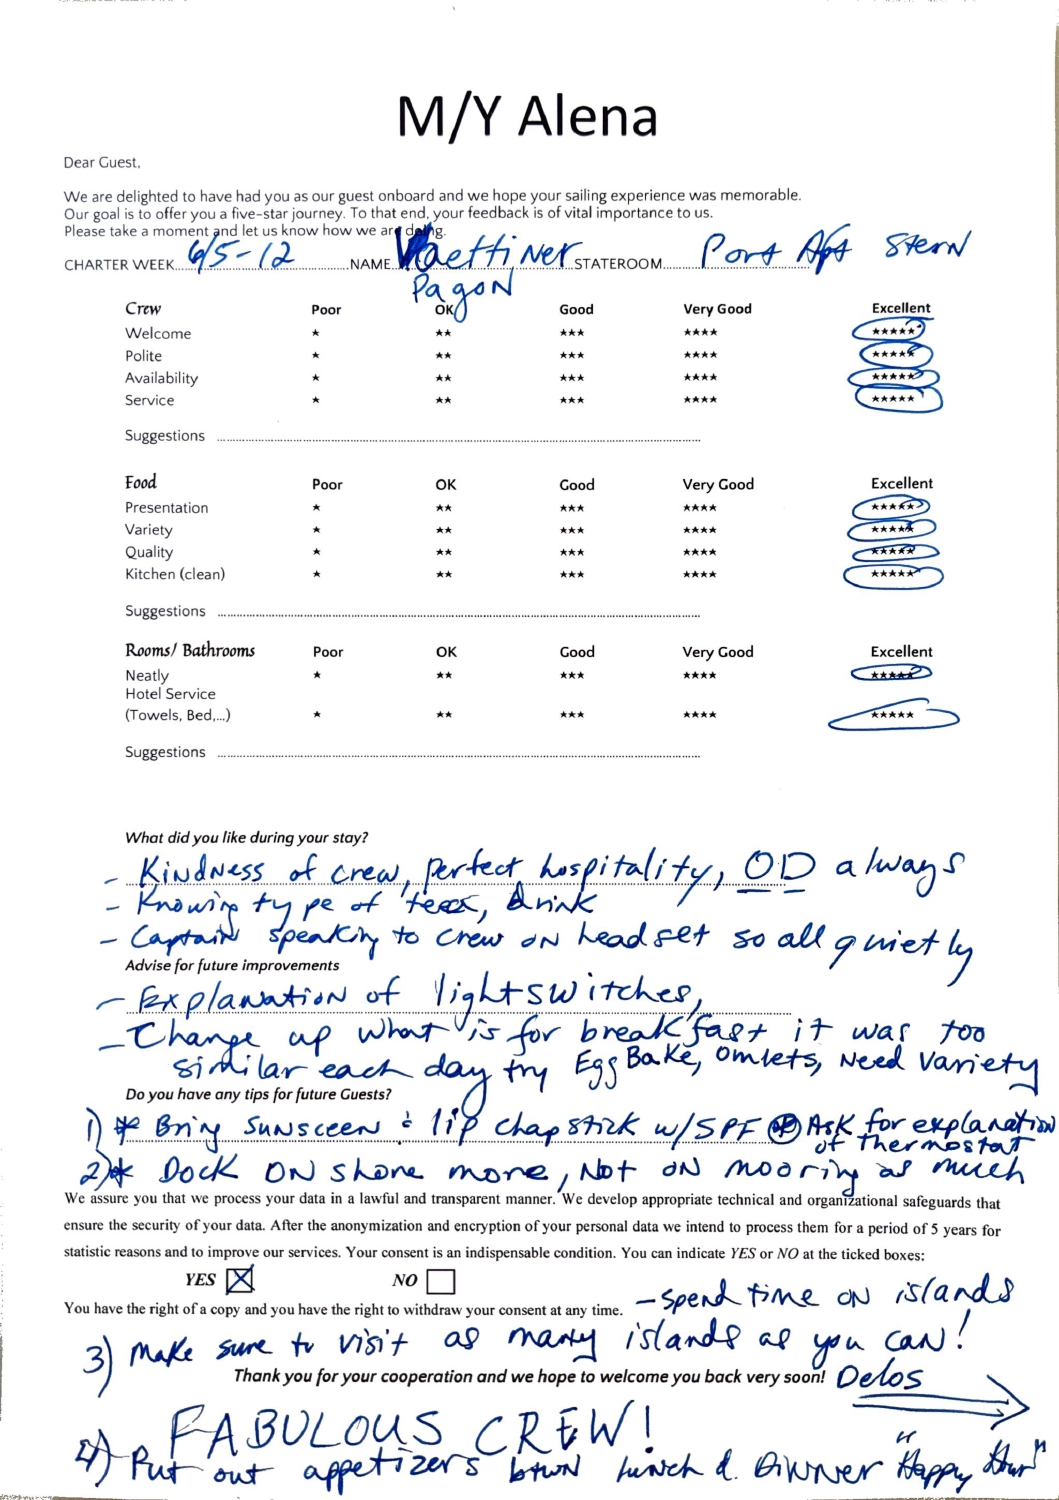 M/Y Alena
Dear Guest,
We are delighted to have had you as our guest onboard and we hope your sailing experience was memorable.
Our goal is to offer you a five-star journey. To that end, your feedback is of vital importance to us.
Please take a moment and let us know how we are doing.
CHARTER WEEK 6/5-12 NAME STATEROOM Port Aft Stern
Pagon
Crew Poor OK Good Very Good Excellent
Welcome ★ ★★ ★★★ ★★★★ ★★★★★
Polite ★ ★★ ★★★ ★★★★ ★★★★★
Availability ★ ★★ ★★★ ★★★★ ★★★★★
Service ★ ★★ ★★★ ★★★★ ★★★★★
Suggestions
Food Poor OK Good Very Good Excellent
Presentation ★ ★★ ★★★ ★★★★ ★★★★★
Variety ★ ★★ ★★★ ★★★★ ★★★★★
Quality ★ ★★ ★★★ ★★★★ ★★★★★
Kitchen (clean) ★ ★★ ★★★ ★★★★ ★★★★★
Suggestions
Rooms/ Bathrooms Poor OK Good Very Good Excellent
Neatly ★ ★★ ★★★ ★★★★ ★★★★★
Hotel Service
(Towels, Bed,...) ★ ★★ ★★★ ★★★★ ★★★★★
Suggestions
What did you like during your stay?
- Kindness of crew, perfect hospitality, OD always
- Knowing type of drink
- Captain speaking to crew on headset so all quietly
Advise for future improvements
- Explanation of lightswitches,
- Change up what is for breakfast it was too
similar each day try Egg Bake, omlets, Need Variety
Do you have any tips for future Guests?
1) * Bring Sunsceen & lip chapstick w/SPF * Ask for explanation
of thermostat
2) * Dock on shore more, Not on mooring as much
We assure you that we process your data in a lawful and transparent manner. We develop appropriate technical and organizational safeguards that
ensure the security of your data. After the anonymization and encryption of your personal data we intend to process them for a period of 5 years for
statistic reasons and to improve our services. Your consent is an indispensable condition. You can indicate YES or NO at the ticked boxes:
YES NO
You have the right of a copy and you have the right to withdraw your consent at any time. - Spend time on islands
3) Make sure to visit as many islands as you can!
Thank you for your cooperation and we hope to welcome you back very soon! Delos
FABULOUS CREW!
4) Put out appetizers btwn lunch & Dinner "Happy Hour"